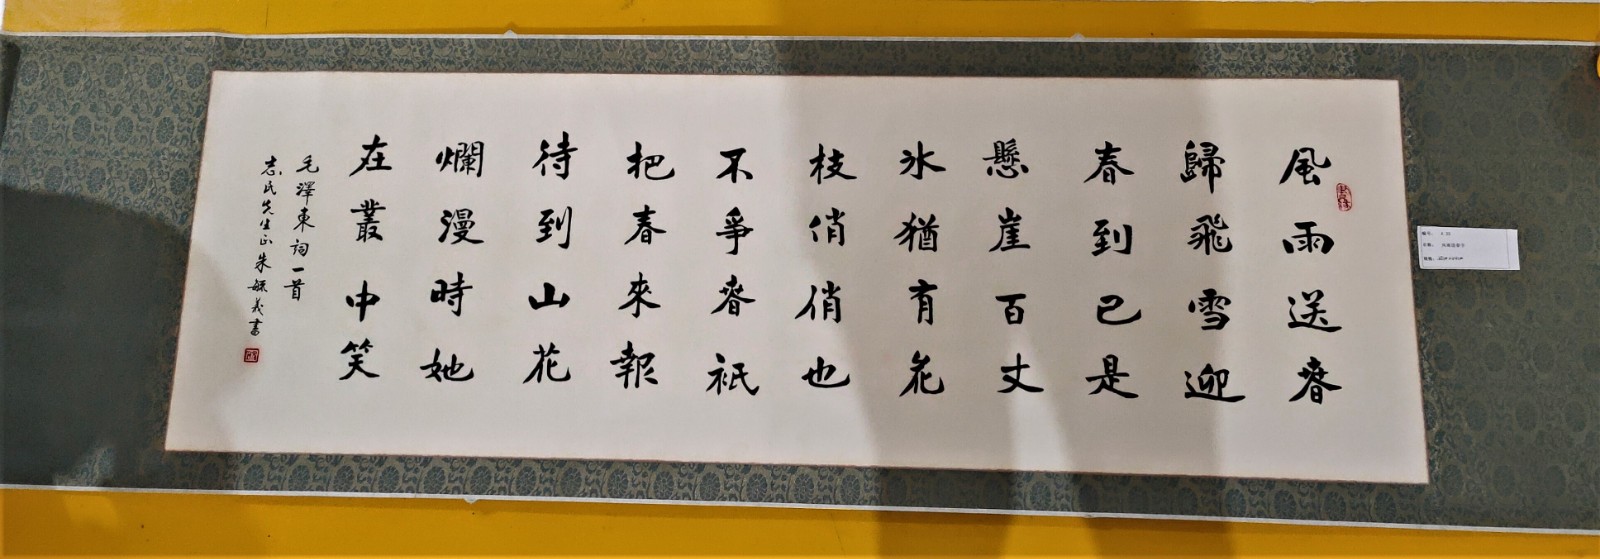 風雨送春
歸飛雪迎
春到已是
懸崖百丈
冰猶有花
枝俏俏也
不爭春衹
把春來報
待到山花
爛漫時她
在叢中笑
毛澤東詞一首
志民先生正朱毓義書